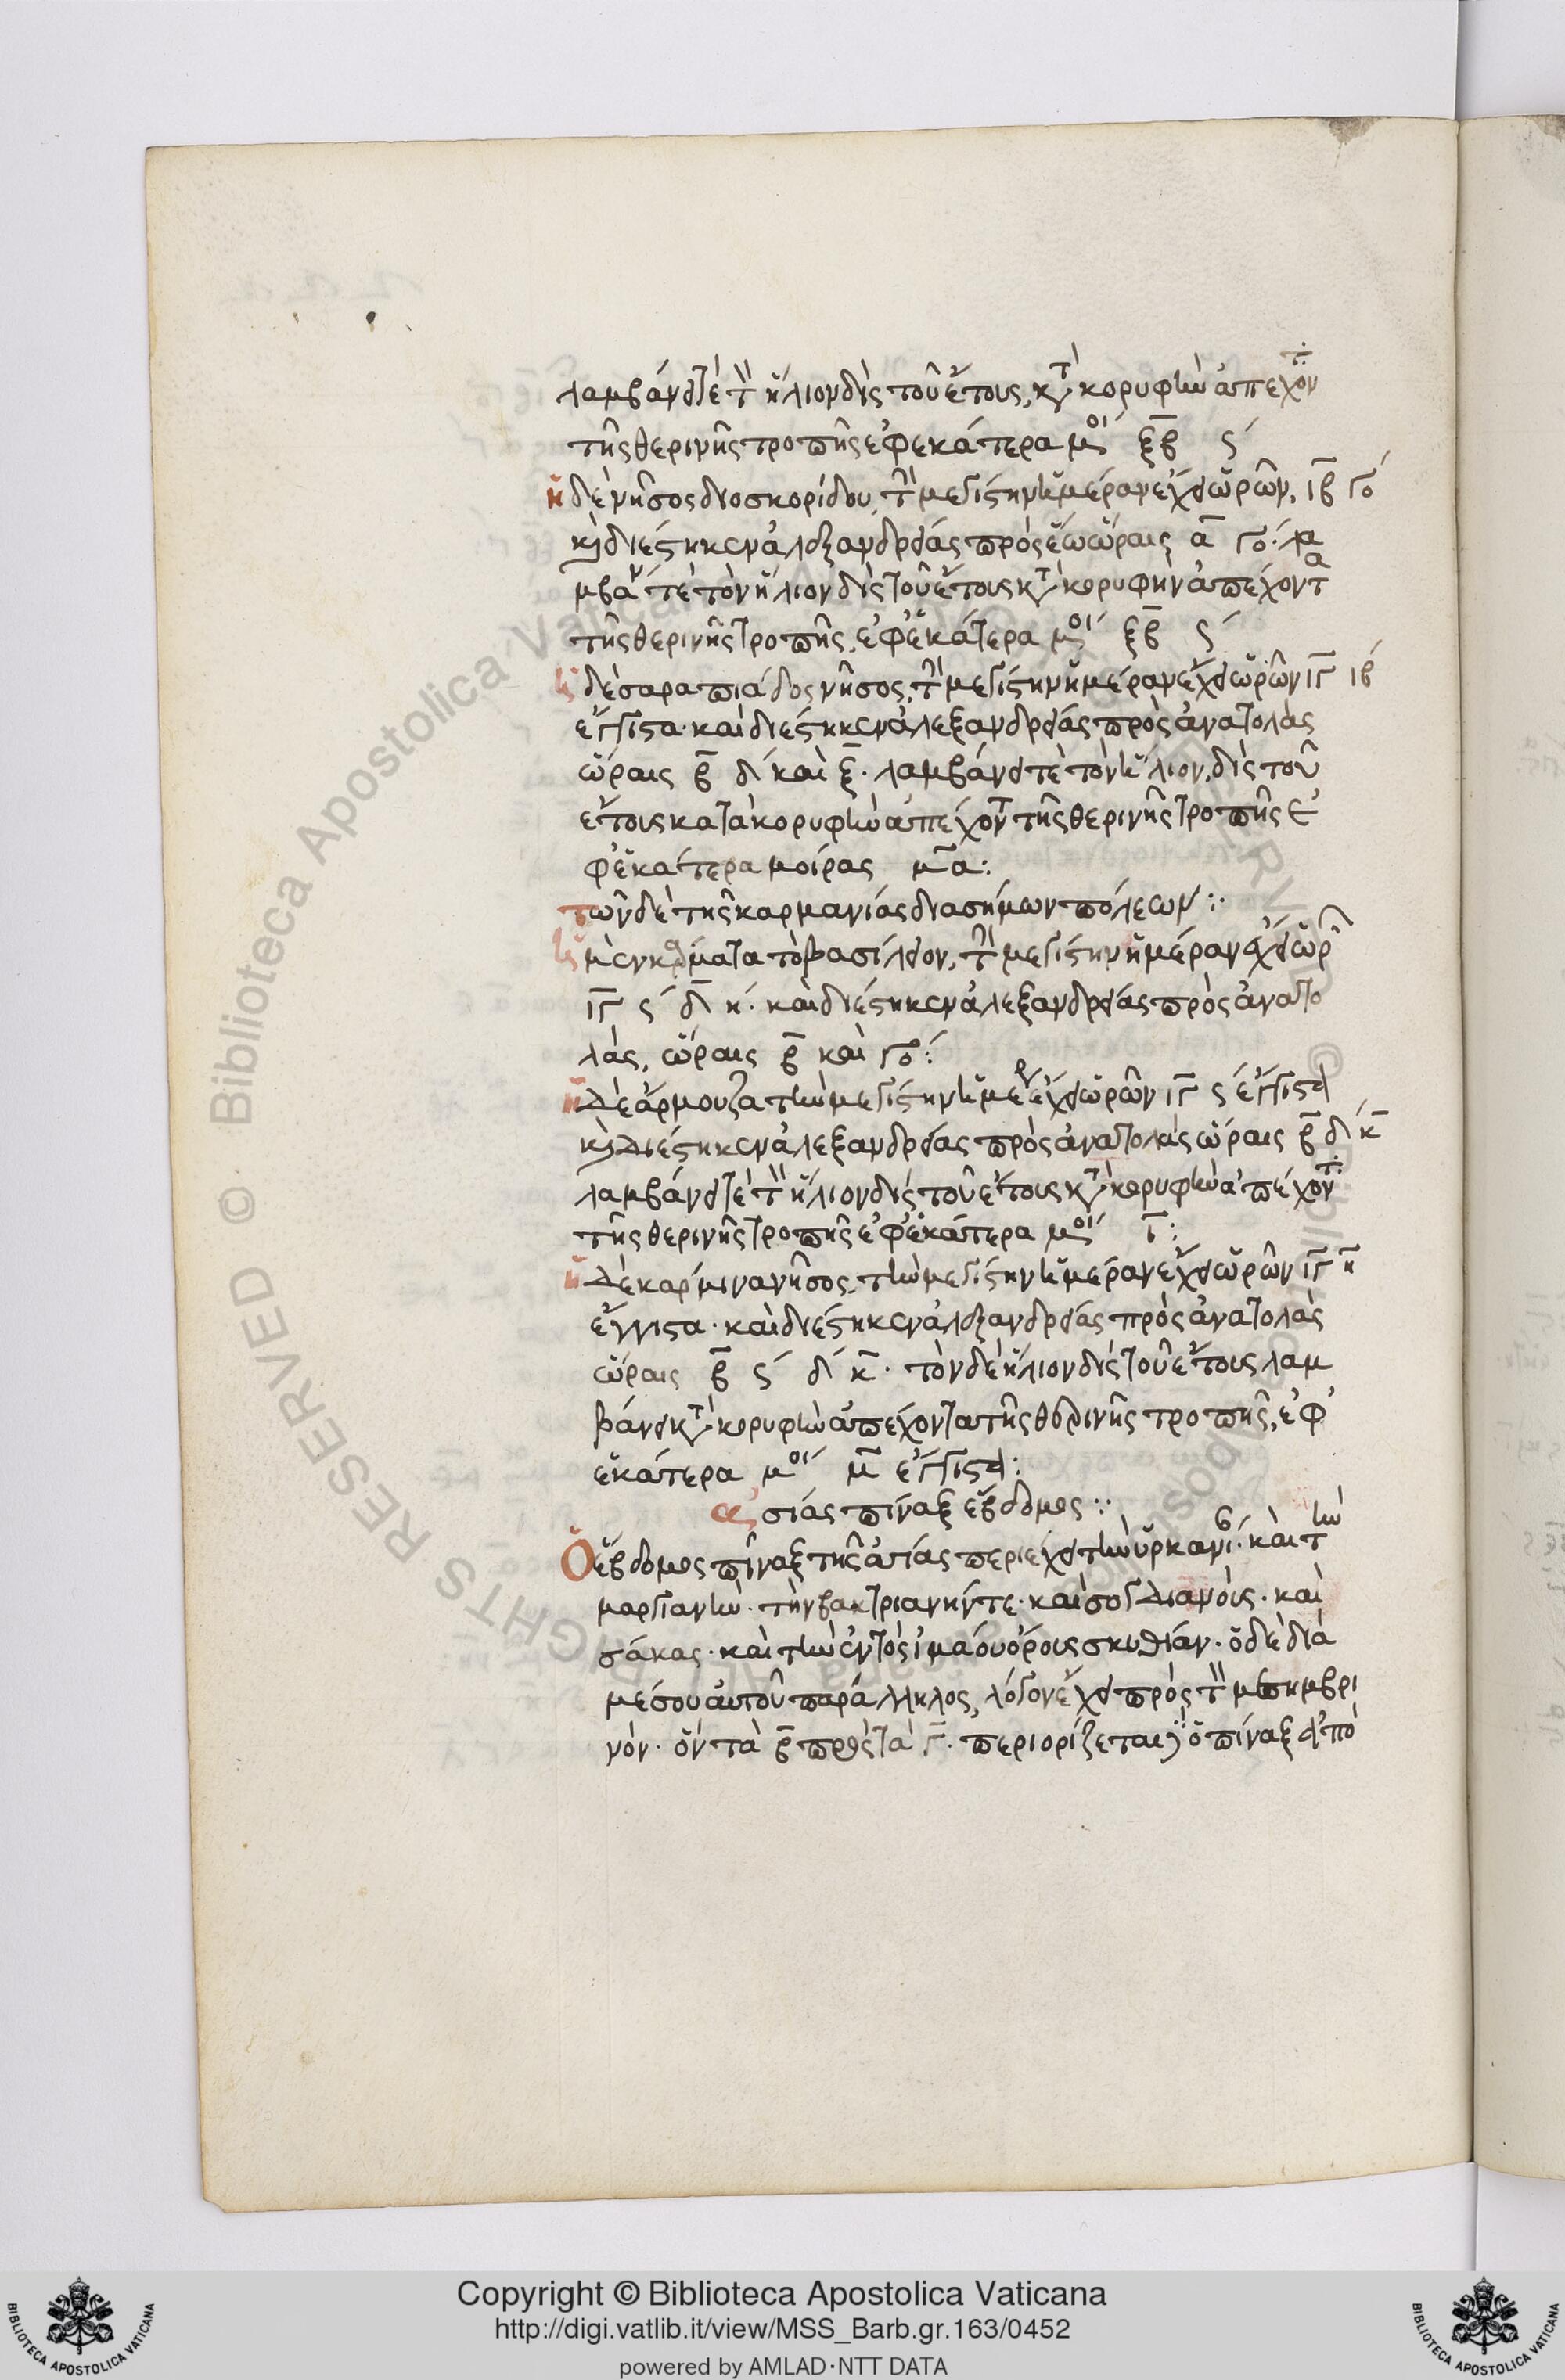 λαμβάνει τὲ τὸν ἥλιον δὶς τοῦ ἔτους, κατὰ κορυφὴν ἀπέχοντα
τῆς θερινῆς τροπῆς ἐφεκάτερα μοί ξβ ϛ
ἡ δὲ νῆσος διοσκορίδου, τὴν μεγίστην ἡμέραν ἔχει ὡρῶν, ιβ γο
κὶ διέστηκεν ἀλεξανδρείας πρὸς ἕω ὥραις α γο· λα
μβάν τὲ τὸν ἥλιον δὶς τοῦ ἔτους κατὰ κορυφὴν ἀπέχοντα
τῆς θερινῆς τροπῆς, ἐφ' ἑκάτερα μοί ξβ ϛ
ἡ δὲ σαραπιάδος νῆσος, τὴν μεγίστην ἡμέραν ἔχει ὡρῶν ιγ ιβ
ἔγγιστα· καὶ διέστηκεν ἀλεξανδρείας πρὸς ἀνατολὰς
ὥραις β δ καὶ ξ· λαμβάνει τὲ τὸν ἥλιον, δὶς τοῦ
ἔτους κατὰ κορυφὴν ἀπέχοντα τῆς θερινῆς τροπῆς ἐ
φ' ἑκάτερα μοίρας μα:
τῶν δὲ τῆς καρμανίας διασήμων πόλεων:·
ἡ μὲν τὸ βασίλειον, τὴν μεγίστην ἡμέραν ἔχει ὡρῶν
ιγ ϛ δ η· καὶ διέστηκεν ἀλεξανδρείας πρὸς ἀνατο
λάς, ὥραις β καὶ γο:
ἡ δὲ ἄρμουζα τὴν μεγίστην ἡμέραν ἔχει ὡρῶν ιγ ϛ ἔγγιστα
κὶ διέστηκεν ἀλεξανδρείας πρὸς ἀνατολὰς ὥραις β δ κ
λαμβάνει τὲ τὸν ἥλιον δὶς τοῦ ἔτους κατὰ κορυφὴν ἀπέχοντα
τῆς θερινῆς τροπῆς ἐφ' ἑκάτερα μοί ι:
ἡ δὲ καρμίνα νῆσος, τὴν μεγίστην ἡμέραν ἔχει ὡρῶν ιγ η
ἔγγιστα· καὶ διέστηκεν ἀλεξανδρείας πρὸς ἀνατολὰς
ὥραις β ϛ δ κ· τὸν δὲ ἥλιον δὶς τοῦ ἔτους λαμ
βάνει κατὰ κορυφὴν ἀπέχοντα τῆς θερινῆς τροπῆς, ἐφ'
ἑκάτερα μοί μ ἔγγιστα:
ἀσίας πίναξ ἕβδομος:·
Ὁ ἕβδομος πίναξ τῆς ἀσίας περιέχει τὴν ὑρκανί· καὶ τὴν
μαργιανὴν· τὴν βακτριανήν τε· καὶ σογδιανοὺς· καὶ
σάκας· καὶ τὴν ἐντὸς ἰμάου ὄρους σκυθίαν· ὁ δὲ διὰ
μέσου αὐτοῦ παράλληλος, λόγον ἔχει πρὸς τὸν μεσημβρι
νόν· ὃν τὰ β πρὸς τὰ γ· περιορίζεται δὲ ὁ πίναξ ἀπὸ
Copyright © Biblioteca Apostolica Vaticana
http://digi.vatlib.it/view/MSS_Barb.gr.163/0452
powered by AMLAD·NTT DATA